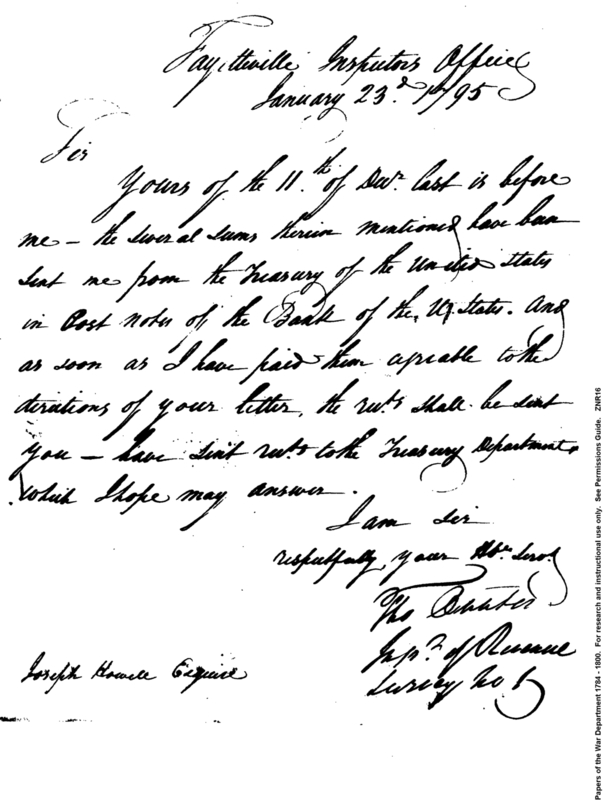 Fayetteville Inspectors Office
January 23d. 1795
Sir
Yours of the 11th. of Decr. last is before
me – the several sums therein mentioned have been
sent me from the Treasury of the United States
in Post notes of the Bank of the U. States. And
as soon as I have paid them agreable to the
directions of your letter, the rects. shall be sent
you – have sent rects. to the Treasury Department,
which I hope may answer.
I am Sir
respectfully your Obt. Servt.
Tho
Inspr. of Revenue
Survey No
Joseph Howell Esquire
Papers of the War Department 1784 - 1800. For research and instructional use only. See Permissions Guide. ZNR16